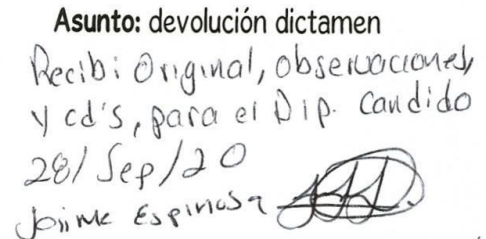 Asunto: devolución dictamen
Recibi: Original, observaciones,
y cd's, para el Dip. Candido
28/Sep/20
Jaime Espinosa